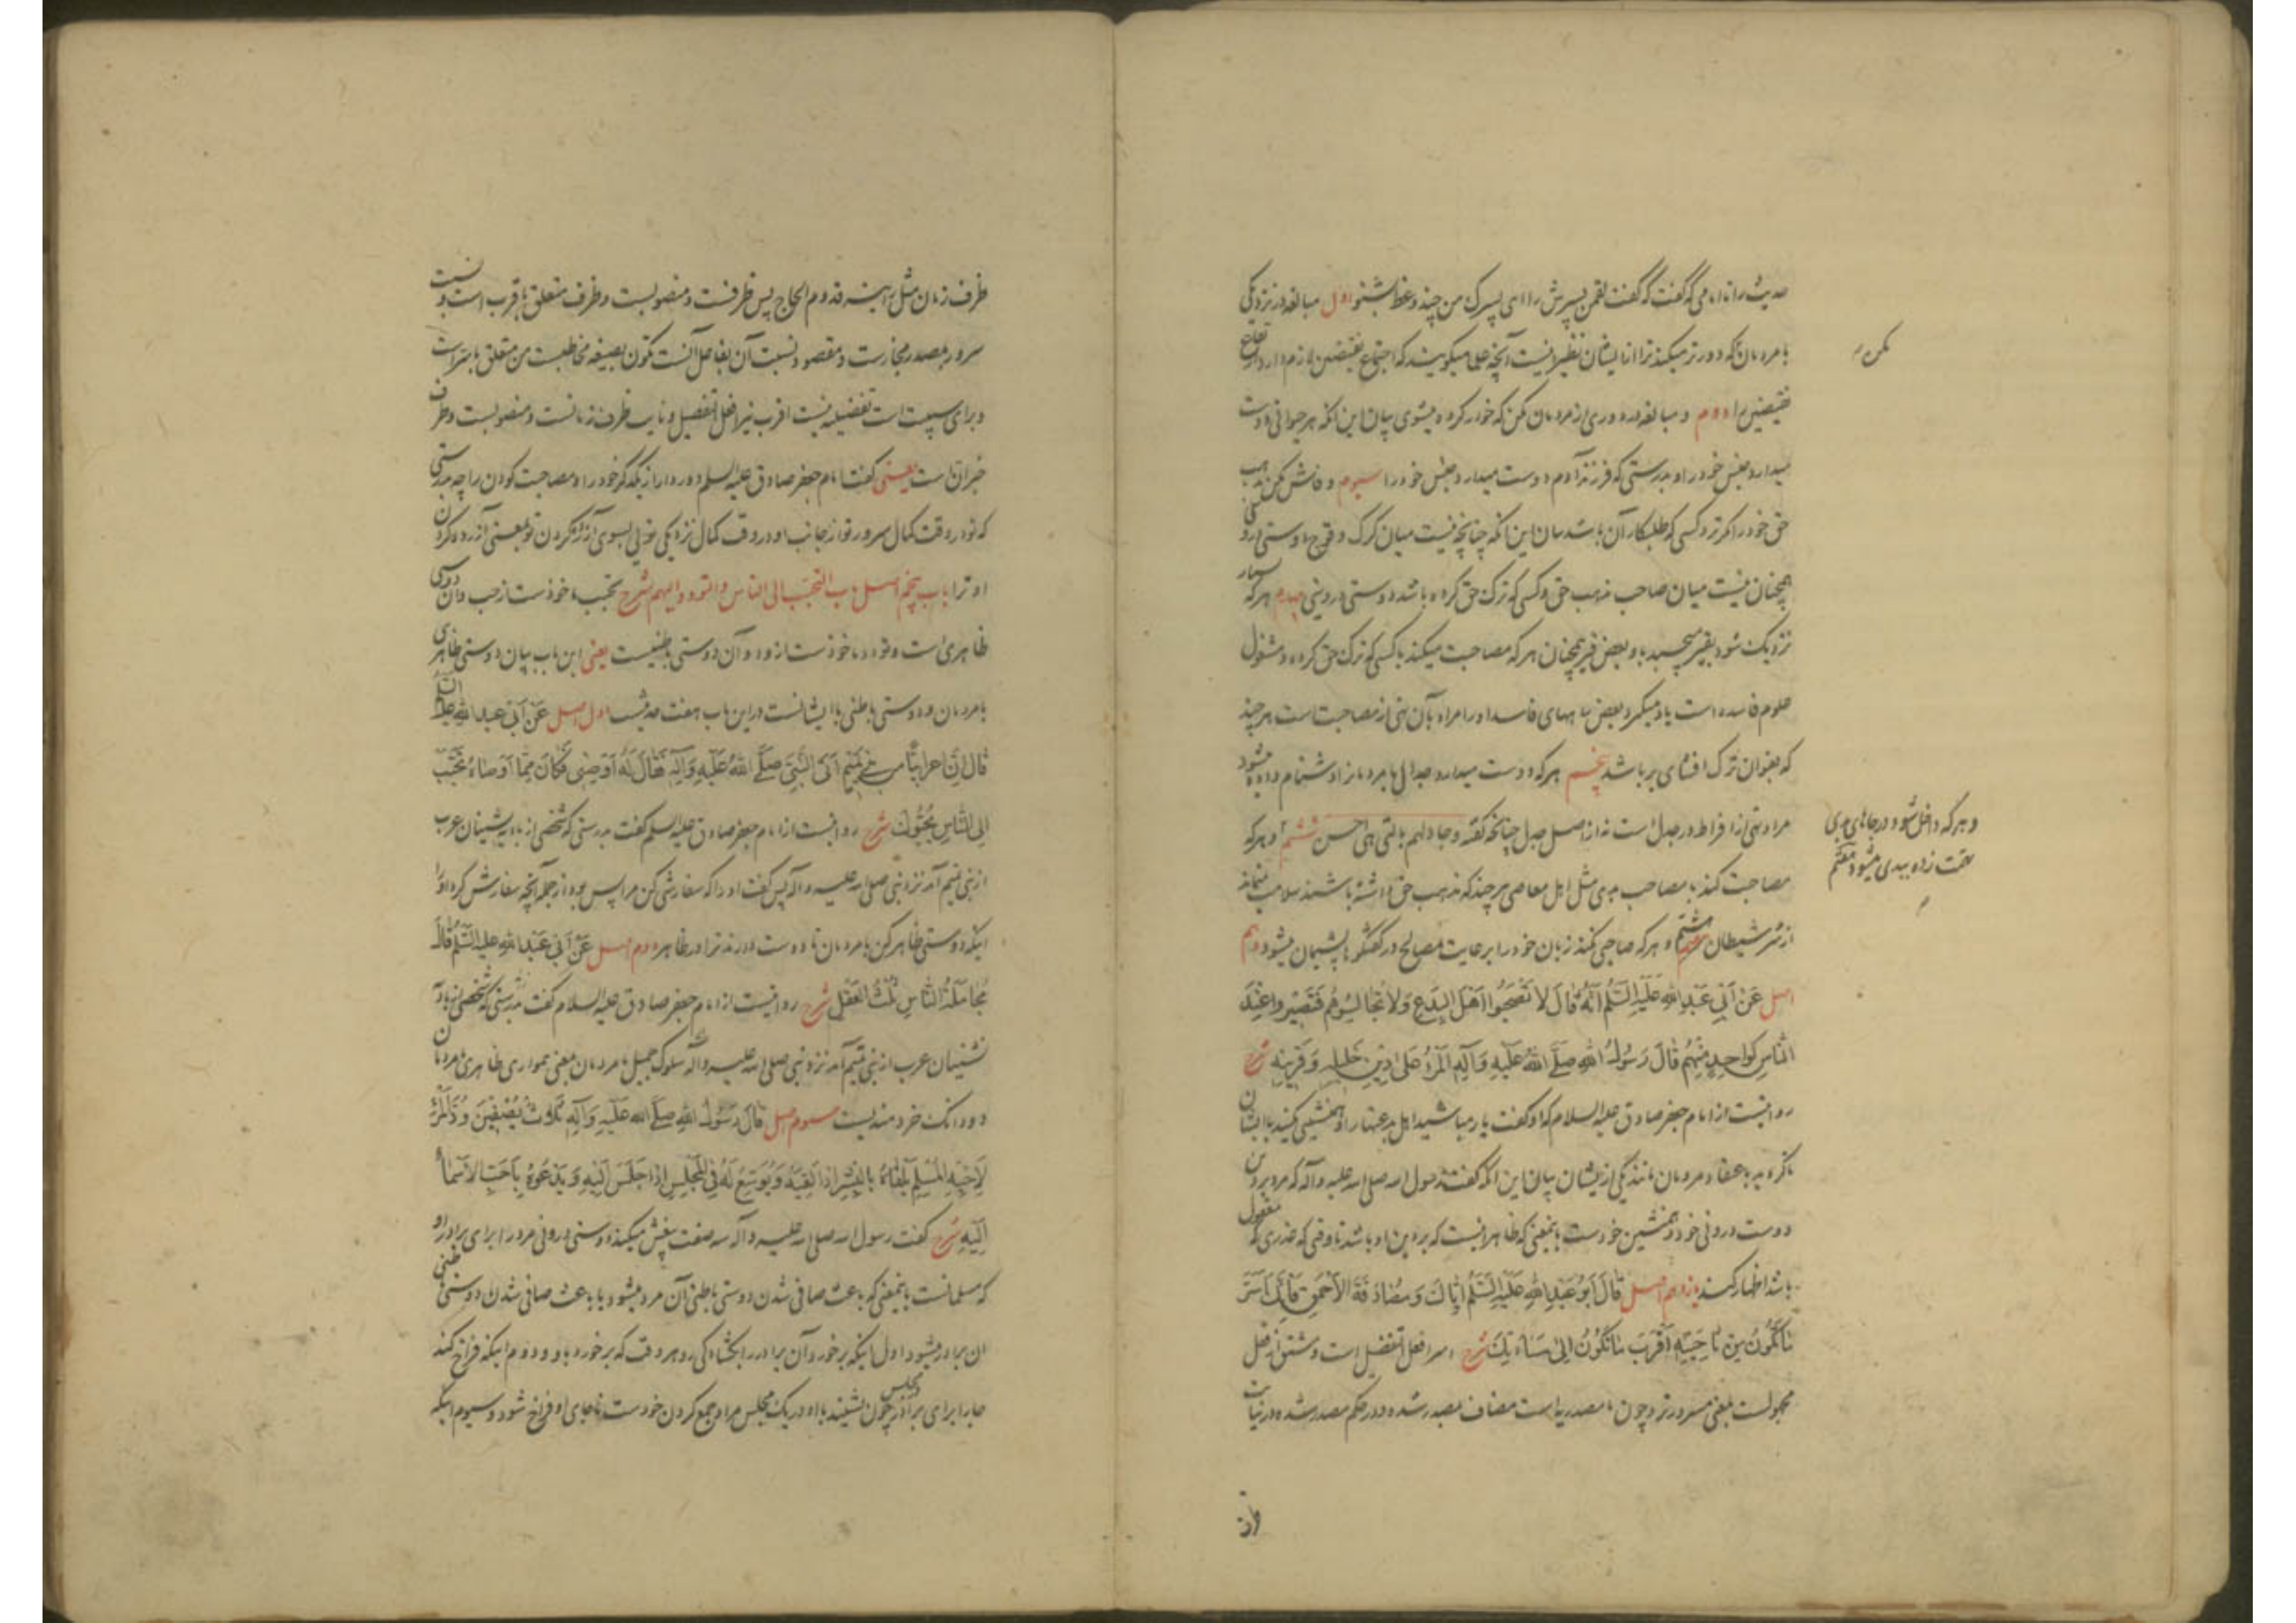 حدیث را تا امامی که گفت که گفت لقمن پسرش را ای پسرک من چند وعظ بشنو اول مبالغه در نزدیکی
مکن
با مردمان که دورتر میکند ترا از ایشان نظیر اینست آنچه علما میگویند که اجتماع نقیضین لازم دارد ارتفاع
نقیضین را دوم و مبالغه در دوری از مردمان مکن که خوار کرده میشوی بیان این آنکه هر حیوانی دوست
میدارد جنس خود را و بدرستی که فرزند آدم دوست میدارد جنس خود را سیوم و فاش مکن مذهب
حق خود را مگر نزد کسی که طلبکار آن باشد بیان این آنکه چنانچه نیست میان گرگ و قوچ دوستی
همچنان نیست میان صاحب مذهب حق و کسی که ترک حق کرده باشد دوستی در دینی چهارم هر که بسیار
نزدیک شود بقیر میچسبد باو بعض قیر همچنان هر که مصاحبت میکند با کسی که ترک حق کرده و مشغول
علوم فاسده است یاد میگیرد بعض راههای فاسد او را مراد بآن نهی از مصاحبت است هر چند
که بعنوان ترک افشای سر باشد پنجم هر که دوست میدارد جدال با مردمانرا دشنام داده میشود
مراد نهی از افراط در جدل است نه از اصل جدل چنانچه گفته وجادلهم بالتی هی احسن ششم و هر که
و هر که داخل شود در جاهای بدی
تهمت زده ببدی میشود هفتم
مصاحبت کند با مصاحب بدی مثل اهل معاصی هر چند که مذهب حق داشته باشند سلامت نمیماند
از شر شیطان هشتم و هر که صاحبی نکند زبان خود را برعایت مصالح در گفتگوها پشیمان میشود دهم
اصل عَنْ أَبِي عَبْدِ اللهِ عَلَيْهِ السَّلَامُ أَنَّهُ قَالَ لَا تَصْحَبُوا أَهْلَ الْبِدَعِ وَلَا تُجَالِسُوهُمْ فَتَصِيرُوا عِنْدَ
النَّاسِ كَوَاحِدٍ مِنْهُمْ قَالَ رَسُولُ اللهِ صَلَّى اللهُ عَلَيْهِ وَآلِهِ الْمَرْءُ عَلَى دِينِ خَلِيلِهِ وَقَرِينِهِ شرح
روایتست از امام جعفر صادق علیه السلام که او گفت یار مباشید اهل بدعتها را و همنشینی مکنید با ایشان
تا گردید باعتقاد مردمان مانند یکی از ایشان بیان این آنکه گفت رسول الله صلی الله علیه و آله که مرد بر دین
دوست درونی خود و همنشین خودست باینمعنی که ظاهر اینست که بر دین او باشد تا وقتی که عذری که معقول
باشد اظهار کند یازدهم اصل قَالَ أَبُو عَبْدِ اللهِ عَلَيْهِ السَّلَامُ إِيَّاكَ وَمُصَادَقَةَ الْأَحْمَقِ فَإِنَّكَ أَسَرَّ
مَا تَكُونُ مِنْ نَاحِيَتِهِ أَقْرَبَ مَا تَكُونُ إِلَى مَسَاءَتِكَ شرح اسر افعل تفضیل است و مشتق از فعل
مجهولست بمعنی مسرورتر و چون ما مصدریه است مضاف مصدر شده و در حکم مصدر شده در نیابت
ظرف زمان مثل رایته قدوم الحاج پس ظرفست و منصوبست و ظرف متعلق باقرب است و نسبت
سرور بمصدر مجازست و مقصود نسبت آن بفاعل آنست تکون بصیغه مخاطبست من متعلق باسرّ است
و برای سببیت است تفضیلیه نیست اقرب نیز افعل التفضیل و نایب ظرف زمانست و منصوبست و ظرف
خبر انّ است یعنی گفت امام جعفر صادق علیه السلم دور دار از یکدگر خود را و مصاحبت کودن را چه بدرستی
که تو در وقت کمال سرور تو از جانب او در وقت کمال نزدیکی توای بسوی آزرده کردن تو بمعنی آزرده کردن
او ترا باب پنجم اصل باب التحبب الی الناس والتودد الیهم شرح تحبب ماخوذست از حب و آن دوستی
ظاهری است و تودد ماخوذست از ود و آن دوستی باطنیست یعنی این باب بیان دوستی ظاهری
با مردمان و دوستی باطنی با ایشانست در این باب هفت حدیثست اول اصل عَنْ أَبِي عَبْدِ اللهِ عَلَيْهِ السَّلَامُ
قَالَ إِنَّ أَعْرَابِيًّا مِنْ بَنِي تَمِيمٍ أَتَى النَّبِيَّ صَلَّى اللهُ عَلَيْهِ وَآلِهِ فَقَالَ لَهُ أَوْصِنِي فَكَانَ مِمَّا أَوْصَاهُ تَحَبَّبْ
إِلَى النَّاسِ يُحِبُّوكَ شرح روایتست از امام جعفر صادق علیه السلم گفت بدرستی که شخصی از بادیه نشینان عرب
از بنی تمیم آمد نزد نبی صلی الله علیه و آله پس گفت او را که سفارشی کن مرا پس بود از جمله آنچه سفارش کرد او را
اینکه دوستی ظاهر کن با مردمان تا دوست دارند ترا در ظاهر دوم اصل عَنْ أَبِي عَبْدِ اللهِ عليه السَّلَمُ قَالَ
مُجَامَلَةُ النَّاسِ ثُلُثُ الْعَقْلِ شرح روایتست از امام جعفر صادق علیه السلام گفت بدرستی که شخصی از بادیه
نشینان عرب از بنی تمیم آمد نزد نبی صلی الله علیه و آله سلوک جمیل با مردمان یعنی همواری ظاهری با مردمان
دو دانک خردمندیست سیوم اصل قَالَ رَسُولُ اللهِ صَلَّى الله عَلَيْهِ وَآلِهِ ثَلَاثٌ يُصْفِينَ وُدَّ الْمَرْءِ
لِأَخِيهِ الْمُسْلِمِ يَلْقَاهُ بِالْبِشْرِ إِذَا لَقِيَهُ وَيُوَسِّعُ لَهُ فِي الْمَجْلِسِ إِذَا جَلَسَ إِلَيْهِ وَيَدْعُوهُ بِأَحَبِّ الْأَسْمَاءِ
إِلَيْهِ شرح گفت رسول الله صلی الله علیه و آله سه صفت بیغش میکند دوستی درونی مرد را برای برادر او
که مسلمانست باینمعنی که باعث صافی شدن دوستی باطنی آن مرد میشود یا باعث صافی شدن دوستی باطنی
ان برادر میشود اول اینکه برخورد آن برادر را بگشاده گی رو هر وقت که برخورد باو و دوم اینکه فراخ کند مجلس
جا را برای برادر چون نشیند با او در یک مجلس مراد جمع کردن خودست تا جای او فراخ شود و سیوم اینکه